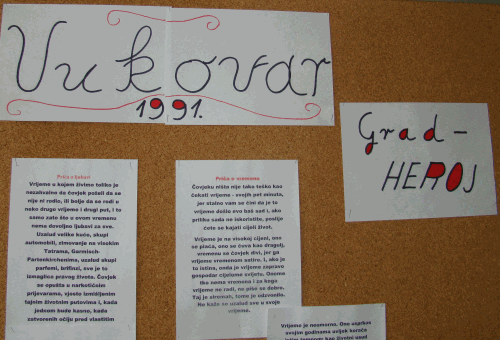 Vukovar
1991.
Grad -
HEROJ
Priča o ljubavi
Vrijeme u kojem živimo toliko je
nezahvalno da čovjek poželi da se
nije ni rodio, ili bolje da se rodi u
neko drugo vrijeme i drugi put, i to
samo zato što u ovom vremenu
nema dovoljno ljubavi za sve.
Uzalud velike kuće, skupi
automobili, zimovanje na visokim
Tatrama, Garmisch-
Partenkirchenima, uzalud skupi
parfemi, brifinzi, sve je to
izmaglica pravog života. Čovjek
se opušta u narkotičnim
prijevarama, vješto izmišljenim
tajnim životnim putovima i, kada
jednom bude kasno, kada
zatvorenih očiju pred vlastitim
Priča o vremenu
Čovjeku ništa nije tako teško kao
čekati vrijeme - svojih pet minuta,
jer stalno vam se čini da je to
vrijeme došlo evo baš sad i, ako
priliku sada ne iskoristite, poslije
ćete se kajati cijeli život.
Vrijeme je na visokoj cijeni, ono
se plaća, ono se čuva kao dragulj,
vremenu se čovjek divi, jer ga
vrijeme vremenom satire. I, ako je
to istina, onda je vrijeme zapravo
gospodar cijelome svijetu. Onome
tko nema vremena i za koga
vrijeme ne radi, ne piše se dobro.
Taj je siromah, tome je odzvonilo.
Ne kaže se uzalud sve u svoje
vrijeme.
Vrijeme je neumorno. Ono usprkos
svojim godinama uvijek korača